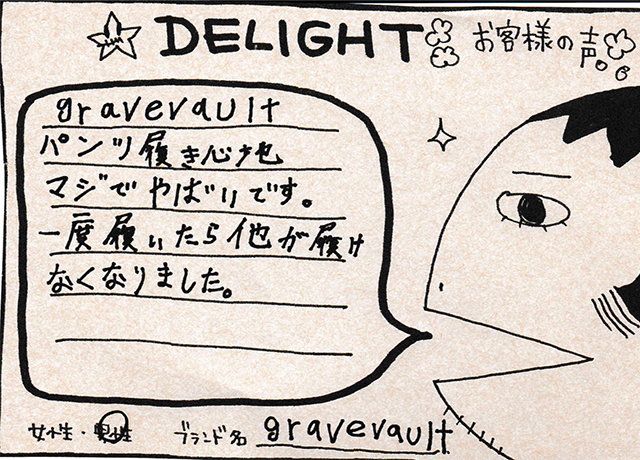 DELIGHT お客様の声。
gravevault
パンツ履き心地
マジでやばいです。
一度履いたら他が履け
なくなりました。
女性・男性 ブランド名 gravevault